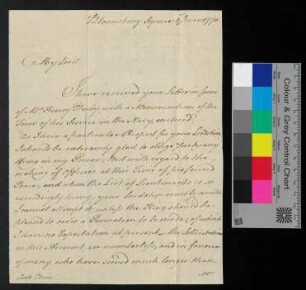 Bloomsbury Square 1770
My Lord
I have received your Letter in favor
of Mr. Henry with a Memorandum of the
Time of his Service in the Navy, enclosed.
As I have a particular Respect for your Lordship
I should be extremely glad to oblige you by any
thing in my Power; but with regard to the
making of Officers at this Time of profound
Peace, and when the List of Lieutenants is so
exceedingly heavy, your Lordship must be sensible
I cannot attempt it, unless the King should be
pleased to order a Promotion to be made, of which
I have no Expectation at present. The Solicitations
on this Account are numberless, and in favour
of many who have served much longer than
Mr.
Lord
Colour & Grey Control Chart